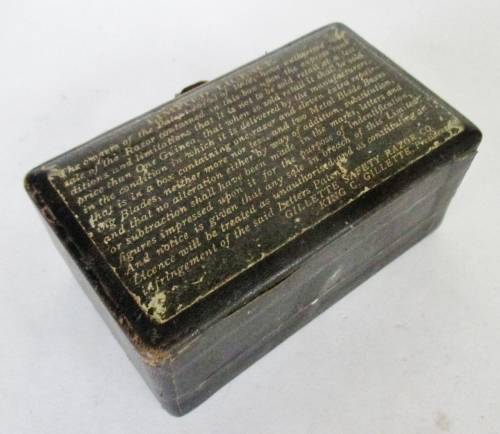 LIMITED LICENCE.
The owner of the
sale of this Razor contained in this box
ditions and limitations that it is not to be retail at a less
price than One Guinea; that when is sold it shall be sold
in the condition in which it is delivered by the manufacturer
that is in a box containing one razor and eleven extra
ing Blades, neither more nor less, and two Metal Blade Boxes
and that no alteration either by way of addition, substitution
or subtraction shall have been made in the marks, letters and
figures impressed upon it for the purpose of indentification.
And notice is given that any sale in breach of this Limited
Licence will be treated as unauthorized and as constituting
infringement of the said Letters Patent.
GILLETTE SAFETY RAZOR CO.
KING C. GILLETTE